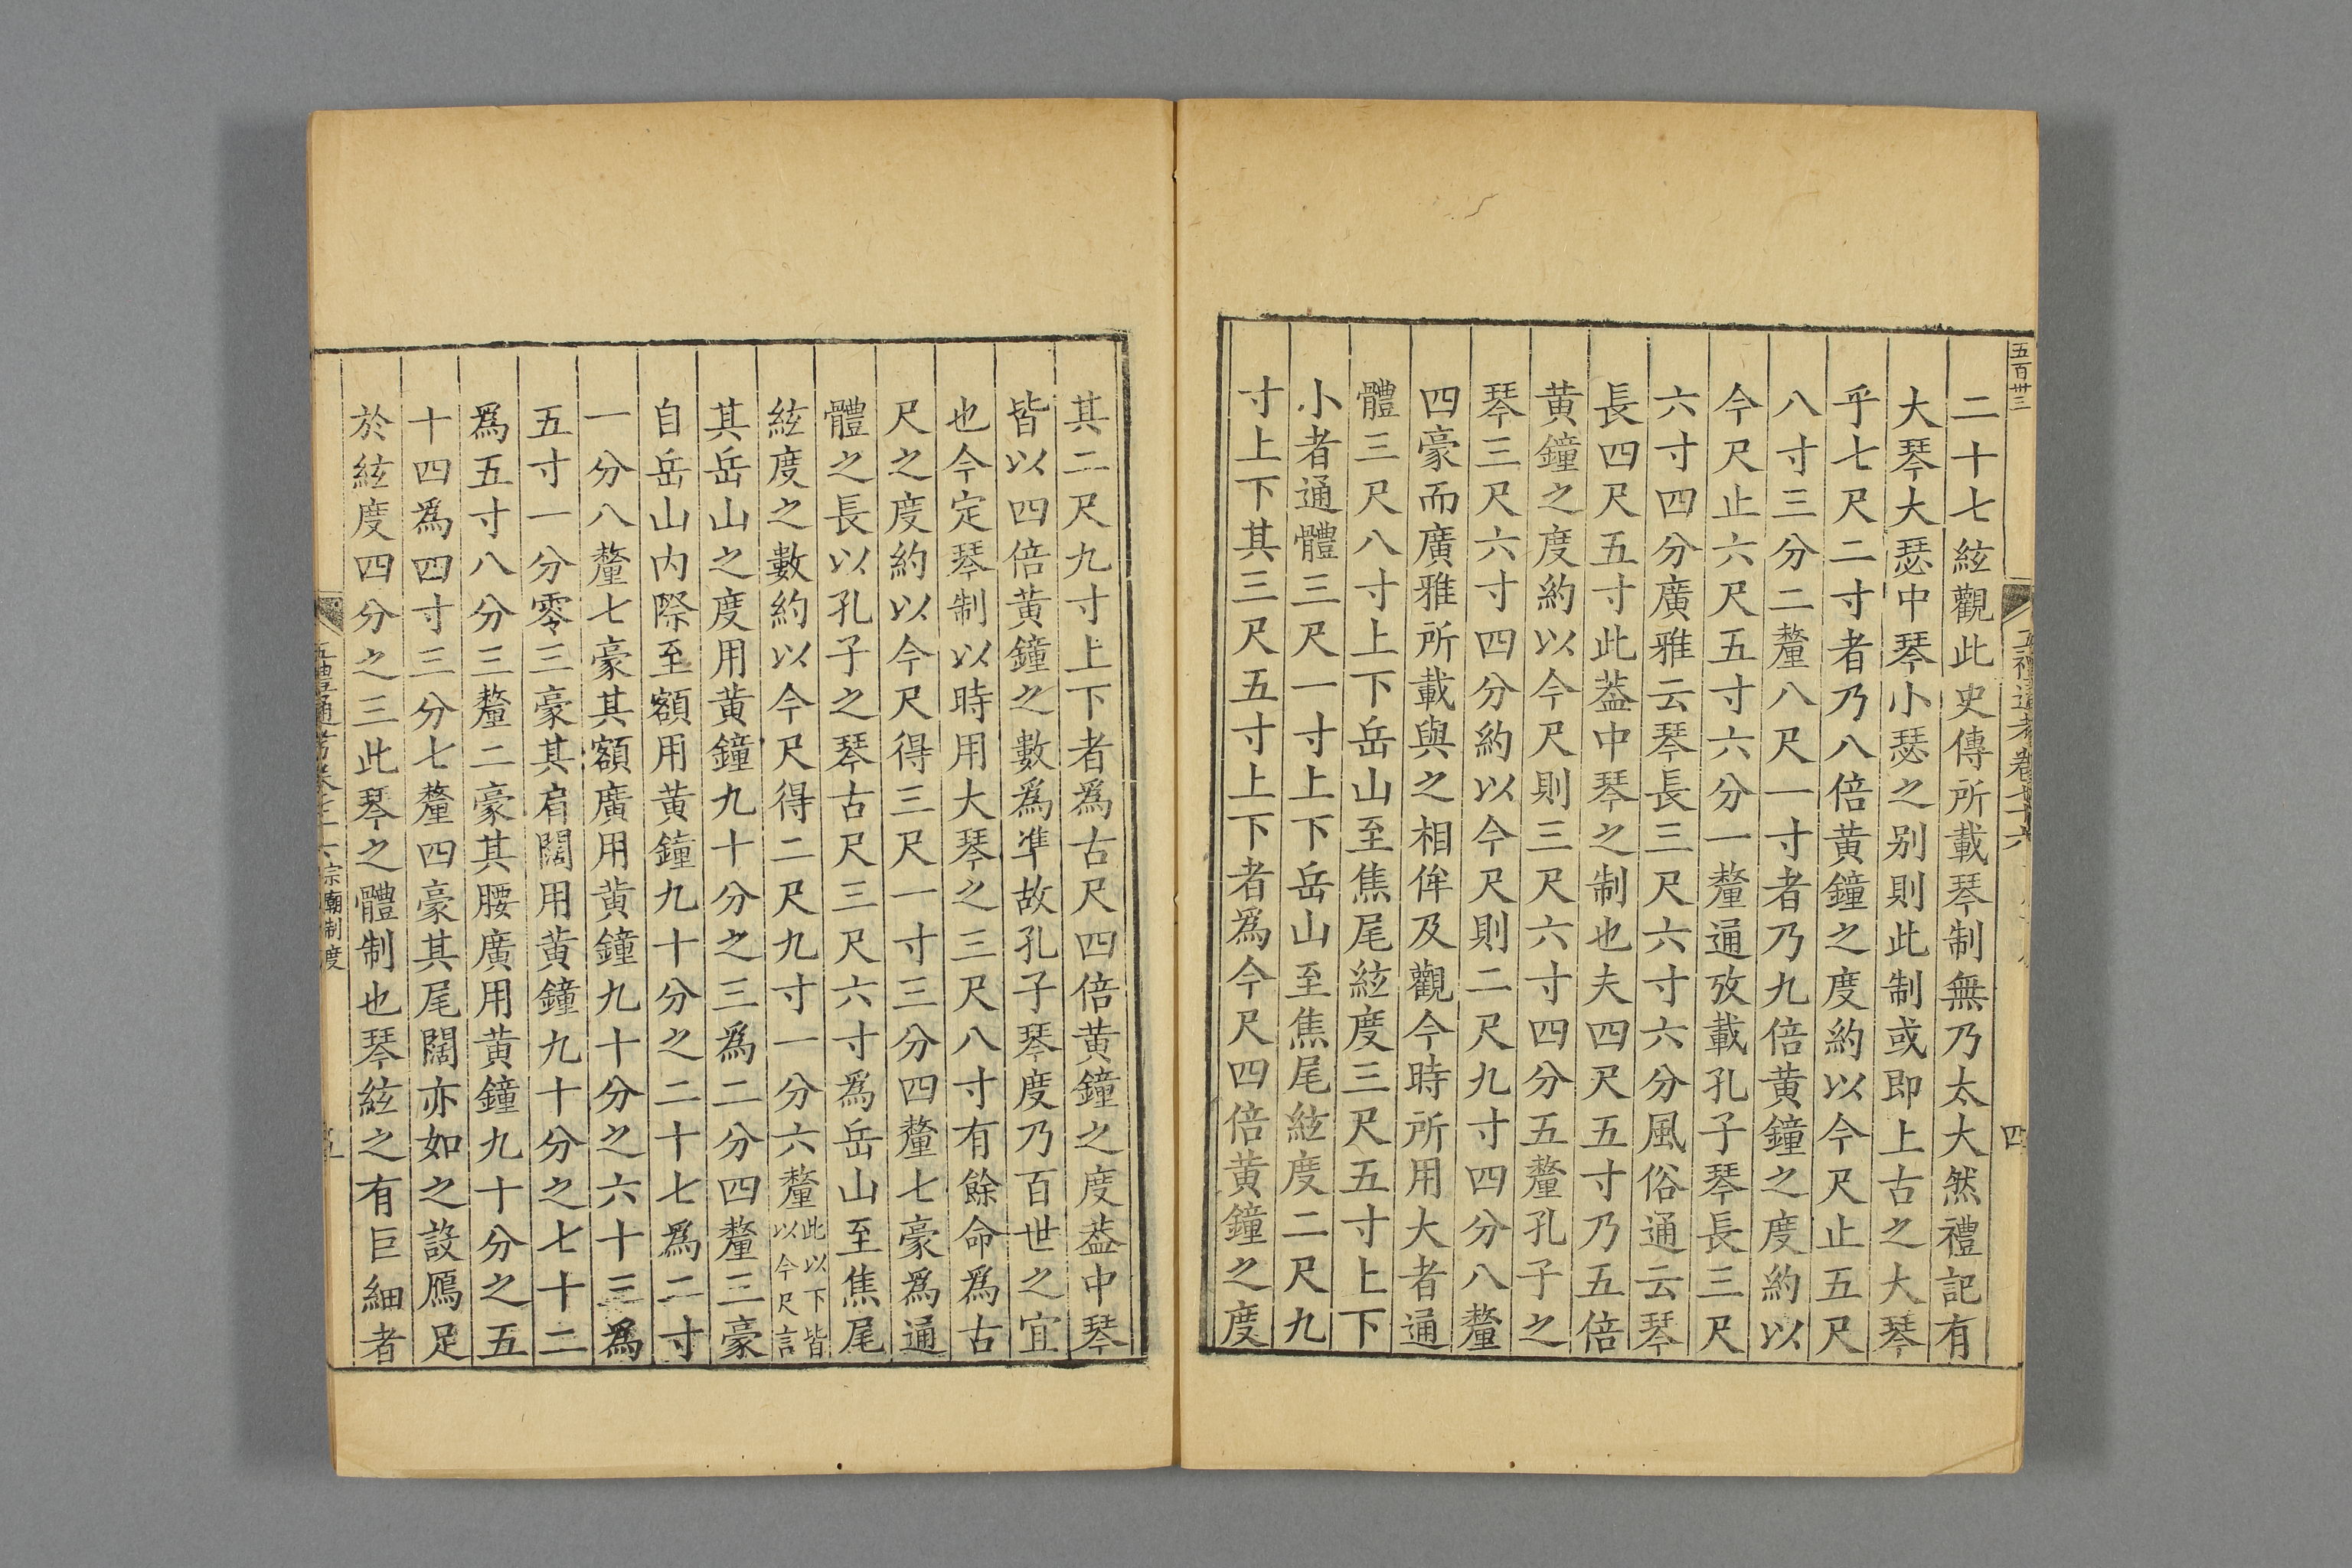 五百卅三
四
二十七絃觀此史傳所載琴制無乃太大然禮記有
大琴大瑟中琴小瑟之別則此制或即上古之大琴
乎七尺二寸者乃八倍黃鐘之度約以今尺止五尺
八寸三分二釐八尺一寸者乃九倍黃鐘之度約以
今尺止六尺五寸六分一釐通攷載孔子琴長三尺
六寸四分廣雅云琴長三尺六寸六分風俗通云琴
長四尺五寸此葢中琴之制也夫四尺五寸乃五倍
黃鐘之度約以今尺則三尺六寸四分五釐孔子之
琴三尺六寸四分約以今尺則二尺九寸四分八釐
四豪而廣雅所載與之相侔及觀今時所用大者通
體三尺八寸上下岳山至焦尾絃度三尺五寸上下
小者通體三尺一寸上下岳山至焦尾絃度二尺九
寸上下其三尺五寸上下者爲今尺四倍黃鐘之度
其二尺九寸上下者爲古尺四倍黃鐘之度葢中琴
皆以四倍黃鐘之數爲準故孔子琴度乃百世之宜
也今定琴制以時用大琴之三尺八寸有餘命爲古
尺之度約以今尺得三尺一寸三分四釐七豪爲通
體之長以孔子之琴古尺三尺六寸爲岳山至焦尾
絃度之數約以今尺得二尺九寸一分六釐此以下皆以今尺言
其岳山之度用黃鐘九十分之三爲二分四釐三豪
自岳山内際至額用黃鐘九十分之二十七爲二寸
一分八釐七豪其額廣用黃鐘九十分之六十三爲
五寸一分零三豪其肩闊用黃鐘九十分之七十二
爲五寸八分三釐二豪其腰廣用黃鐘九十分之五
十四爲四寸三分七釐四豪其尾闊亦如之設鴈足
於絃度四分之三此琴之體制也琴絃之有巨細者
宗廟制度